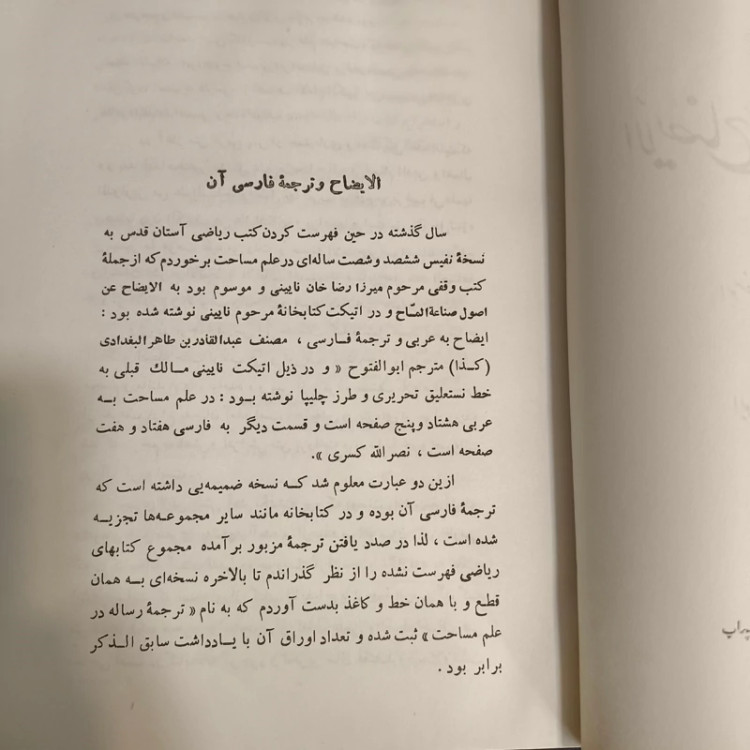 الایضاح و ترجمهٔ فارسی آن
سال گذشته در حین فهرست کردن کتب ریاضی آستان قدس به
نسخهٔ نفیس ششصد وشصت ساله‌ای در علم مساحت برخوردم که از جملهٔ
کتب وقفی مرحوم میرزا رضا خان نایینی و موسوم بود به الایضاح عن
اصول صناعة المسّاح و در اتیکت کتابخانهٔ مرحوم نایینی نوشته شده بود :
ایضاح به عربی و ترجمهٔ فارسی ، مصنف عبدالقادربن طاهر البغدادی
(کذا) مترجم ابوالفتوح « و در ذیل اتیکت نایینی مالك قبلی به
خط نستعلیق تحریری و طرز چلیپا نوشته بود : در علم مساحت به
عربی هشتاد وپنج صفحه است و قسمت دیگر به فارسی هفتاد و هفت
صفحه است ، نصرالله کسری ».
ازین دو عبارت معلوم شد که نسخه ضمیمه‌یی داشته است که
ترجمهٔ فارسی آن بوده و در کتابخانه مانند سایر مجموعه‌ها تجزیه
شده است ، لذا در صدد یافتن ترجمهٔ مزبور برآمده مجموع کتابهای
ریاضی فهرست نشده را از نظر گذراندم تا بالاخره نسخه‌ای به همان
قطع و با همان خط و کاغذ بدست آوردم که به نام « ترجمهٔ رساله در
علم مساحت » ثبت شده و تعداد اوراق آن با یادداشت سابق الذکر
برابر بود .
الایضاح